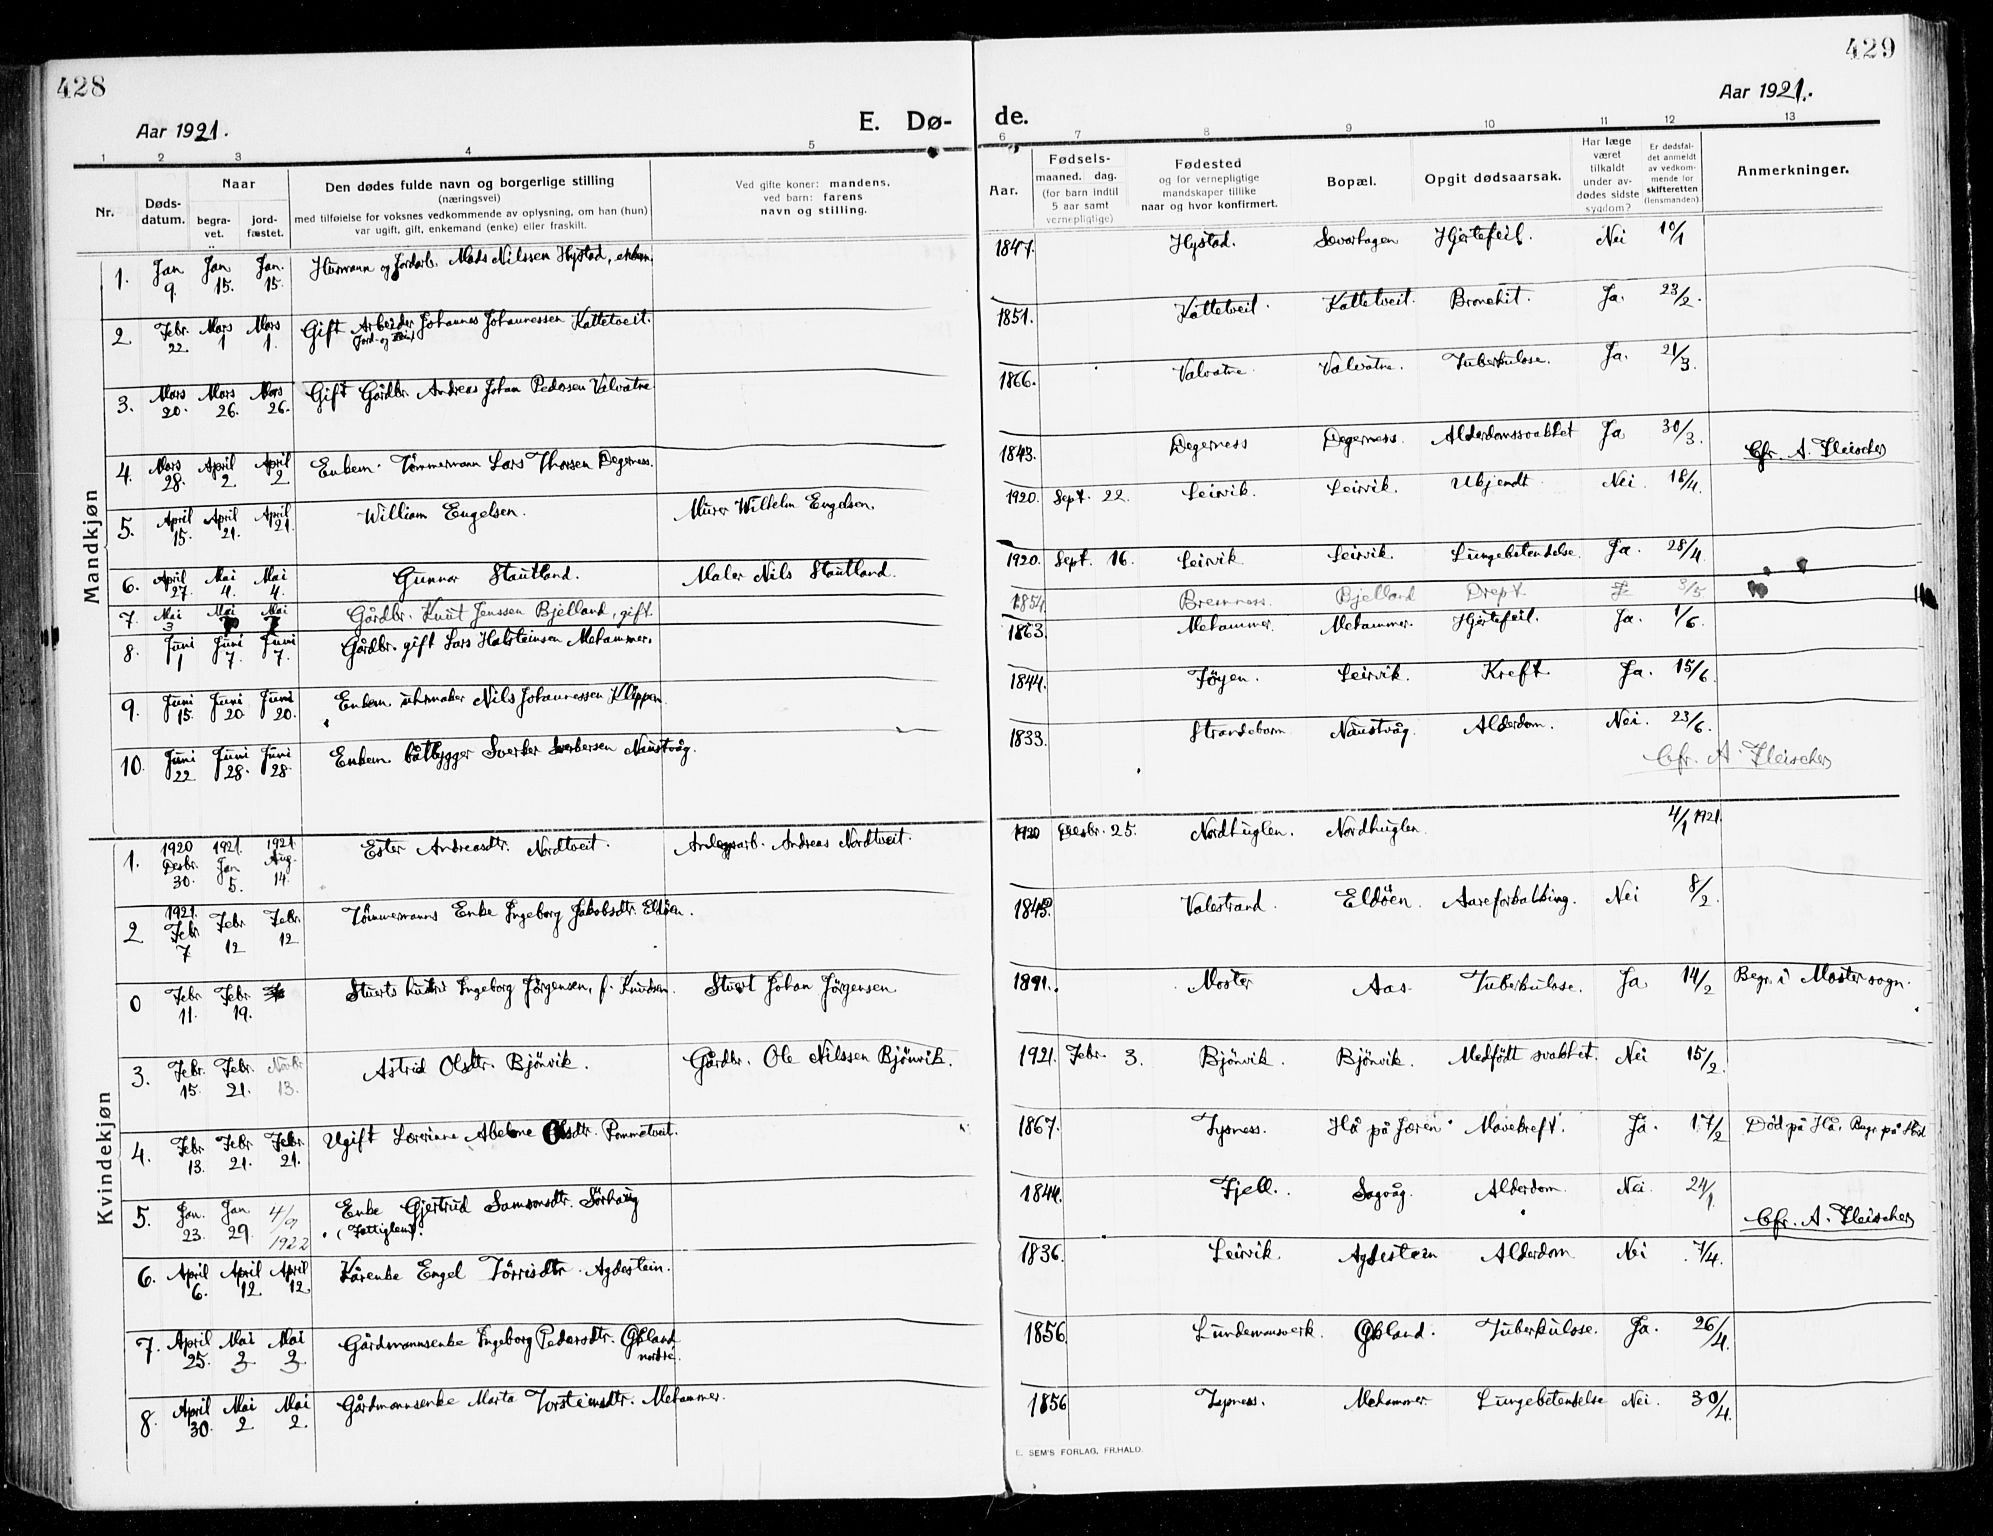 428
429
Aar 1921.
E. Dø-
de.
Aar 1921.
1 2 3 4 5 6 7 8 9 10 11 12 13
Nr.
Døds-
datum.
Naar
begra-
vet.
jord-
fæstet.
Den dødes fulde navn og borgerlige stilling
(næringsvei)
med tilføielse for voksnes vedkommende av oplysning, om han (hun)
var ugift, gift, enkemand (enke) eller fraskilt.
Ved gifte koner: mandens,
ved barn: farens
navn og stilling.
Aar.
Fødsels-
maaned. dag.
(for barn indtil
5 aar samt
vernepligtige)
Fødested
og for vernepligtige
mandskaper tillike
naar og hvor konfirmert.
Bopæl.
Opgit dødsaarsak.
Har læge
været
tilkaldt
under av-
dødes sidste
sygdom?
Er dødsfal-
det anmeldt
av vedkom-
mende for
skifteretten
(lensmanden).
Anmerkninger.
Mandkjøn
1. Jan 9. Jan 15. Jan. 15. Husmann og Jordarb. Mads Nilssen Hystad, enkem. 1847. Hystad. Sævarhagen Hjertefeil. Nei 10/1
2. Febr. 22. Mars 1 Mars 1. Gift Arbeider Johannes Johannessen Kattetveit. 1851. Kattetveit. Kattetveit. Bronchit. Ja. 23/2.
3. Mars 20. Mars 26. Mars 26. Gift Gårdbr. Andreas Johan Pedersen Valvatne 1866. Valvatne. Valvatne. Tuberkulose. Ja. 21/3.
4. Mars 28. April 2. April 2 Enkem. Tömmermann Lars Thorsen Degerness. 1843. Degerness Degerness. Alderdomssvakhet Ja 30/3. Cfr. A. Fleischer
5. April 15. April 21. April 21. William Engelsen. Murer Wilhelm Engelsen. 1920. Sept. 22. Leirvik. Leirvik. Ukjendt. Nei. 18/4.
6. April 27. Mai 4. Mai 4. Gunnar Stautland. Maler Nils Stautland. 1920. Sept. 16. Leirvik. Leirvik. Lungebetendelse. Ja. 28/4.
7. Mai 3 Mai Mai Gårdbr. Knut Janssen Bjelland, gift. 1854. Bremness. Bjelland Drept. 3/5
8. Juni 1 Juni 7. Juni 7. Gårdbr. gift Lars Halsteinsen Mehammer. 1863. Mehammer. Mehammer. Hjertefeil. Ja. 1/6.
9. Juni 15. Juni 20. Juni 20. Enkem. uhrmaker Nils Johannessen Klippen 1844. Töyen. Leirvik. Kreft. Ja. 15/6.
10. Juni 22 Juni 28. Juni 28. Enkem. båtbygger Sverker Sverkersen Naustvåg. 1833. Strandebarm Naustvåg. Alderdom. Nei. 23/6.
Cfr. A. Fleischer
Kvindekjøn
1. 1920 Desbr. 30. 1921. Jan 5. 1921. Aug. 14. Ester Andreasdtr. Nordtveit. Anlegsarb. Andreas Nordtveit. 1920 Desbr. 25. Nordhuglen. Nordhuglen. 4/1 1921.
2 1921. Febr. 7. Febr. 12 Febr. 12 Tömmermanns Enke Ingeborg Jakobsdtr. Eldöen. Valestrand. Eldöen. Aareforkalkning. Nei 8/2.
0 Febr. 11. Febr. 19. Stuerts hustru Ingeborg Jörgensen, f. Knudsen. Stuert Johan Jörgensen 1891. Moster Aas. Tuberkulose. Ja 14/2 Begr. i Moster sogn.
3. Febr. 15. Febr. 21. Novbr. 13. Astrid Olsdtr. Bjönvik. Gårdbr. Ole Nilssen Bjönvik. 1921. Febr. 3. Bjönvik. Bjönvik. Medfödt svakhet. Nei 15/2.
4. Febr. 13. Febr. 21. Febr. 21. Ugift Olsdtr. Rommetveit. 1867. Tysness. Hå på Jæren. Mavekreft. Ja. 17/2 Död på Hå. Begr. på
5. Jan. 23. Jan 29. 4/9 1922 Enke Gjertrud Samsonsdtr. Sörhaug
(Fattiglem). 1844. Fjell. Sagvåg. Alderdom. Nei. 24/1.
Cfr. A. Fleischer
6. April 6. April 12. April 12. Kårenke Engel Törrisdtr. Agdestein. 1836. Leirvik. Agdestein Alderdom Nei 7/4.
7. April 25. Mai 3 Mai 3 Gårdmannsenke Ingeborg Pedersdtr. Økland
nordre. 1856. Lundemansverk. Økland. Tuberkulose. Ja. 26/4.
8. April 30. Mai 2 Mai 2. Gårdmannsenke Marta Torsteinsdtr. Mehammer. 1856 Tysness. Mehammer. Lungebetendelse Nei. 30/4.
E. SEM'S FORLAG, FR.HALD.